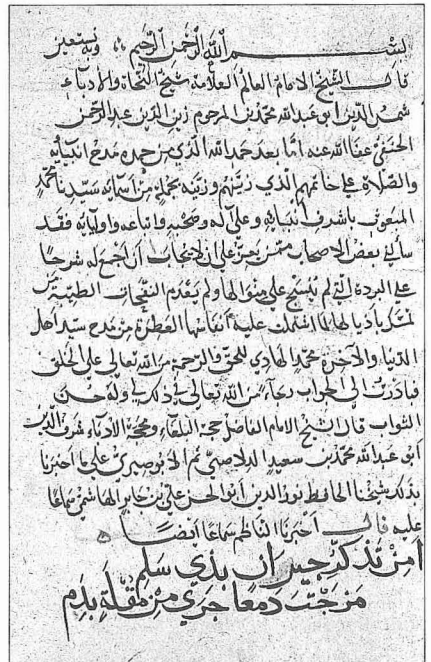 بسم الله الرحمن الرحيم وبه نستعين
قال الشيخ الامام العالم العلامة شيخ النحاة والادباء
شمس الدين ابو عبد الله محمد بن المرحوم زين الدين عبد الرحمن
الحنفي عفا الله عنه اما بعد حمد الله الذي من حمده مدح انبيائه
والصلاة على خاتمهم الذي زينهم وزينه بجملة من اسمائه سيدنا محمد
المبعوث باشرف انبائه وعلى آله وصحبه واتباعه واوليائه فقد
سألني بعض الاصحاب ممن يعز علي ان لا يجاب ان اجمع له شرحا
على البردة التي لم ينسج على منوالها ولم يعدم النفحات الطيبة من
تمسك باذيالها لما اشتملت عليه ابياتها العطرة من مدح سيد اهل
الدنيا والآخرة محمد الهادي للحق والرحمة من الله تعالى على الخلق
فبادرت الى الجواب رجاء من الله تعالى في ذلك وله حسن
الثواب قال الشيخ الامام الفاضل حجة البلغاء ومحجة الادباء شرف الدين
ابو عبد الله محمد بن سعيد الدلاصي ثم الابوصيري على ما اخبرنا
بذلك شيخنا الحافظ نور الدين ابو الحسن علي بن جابر الهاشمي سماعا
عليه قال اخبرنا الناظم سماعا ايضا
أمن تذكر جيران بذي سلم
مزجت دمعا جرى من مقلة بدم